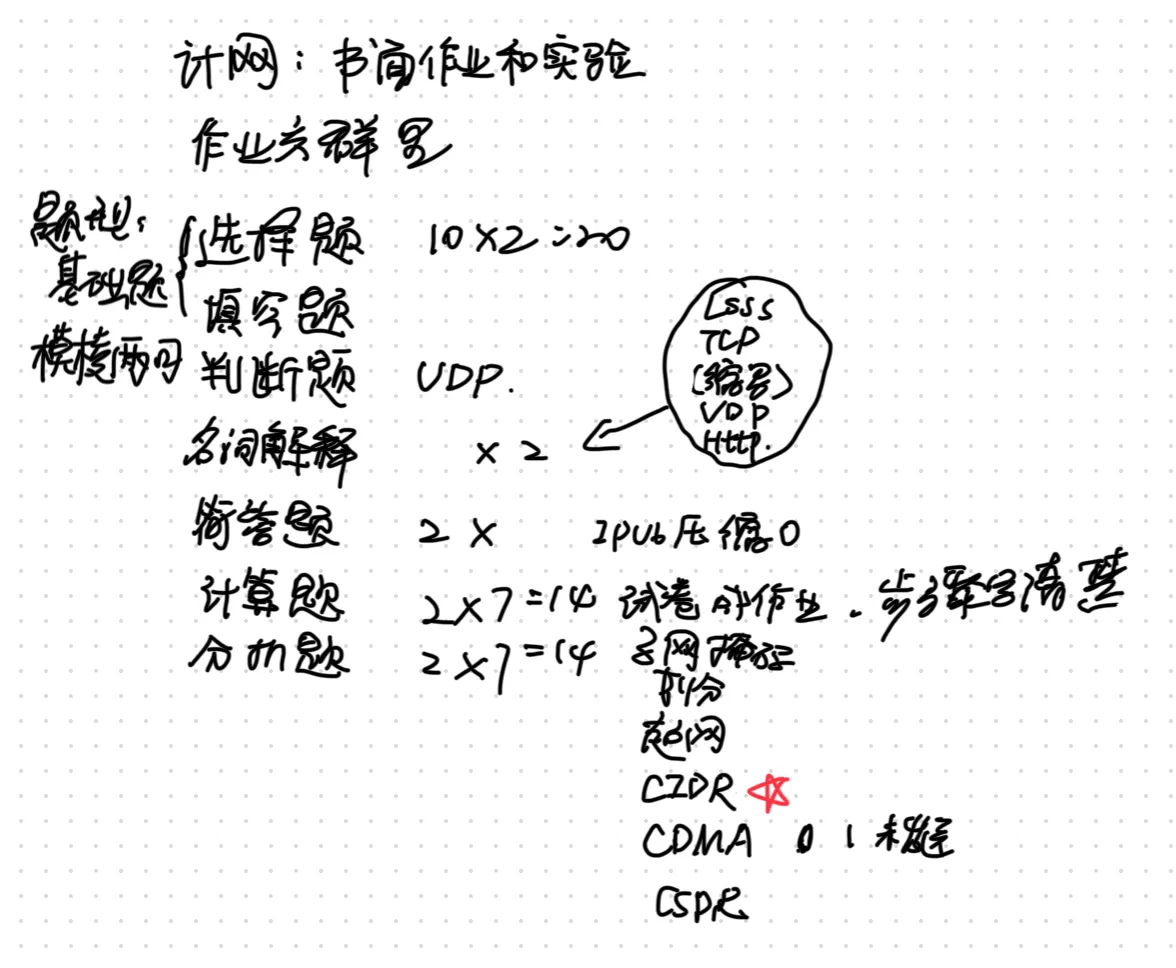 计网：书面作业和实验
作业交群里
题型：
基础题
模棱两可
选择题 10×2=20
填空题
判断题 UDP.
名词解释 ×2
TCP
(缩写)
UDP
Http.
简答题 2× 压缩0
计算题 2×7=14 试卷 作业. 步骤写清楚
分析题 2×7=14 子网掩码
划分
超网
CIDR
CDMA 0 1 未发送